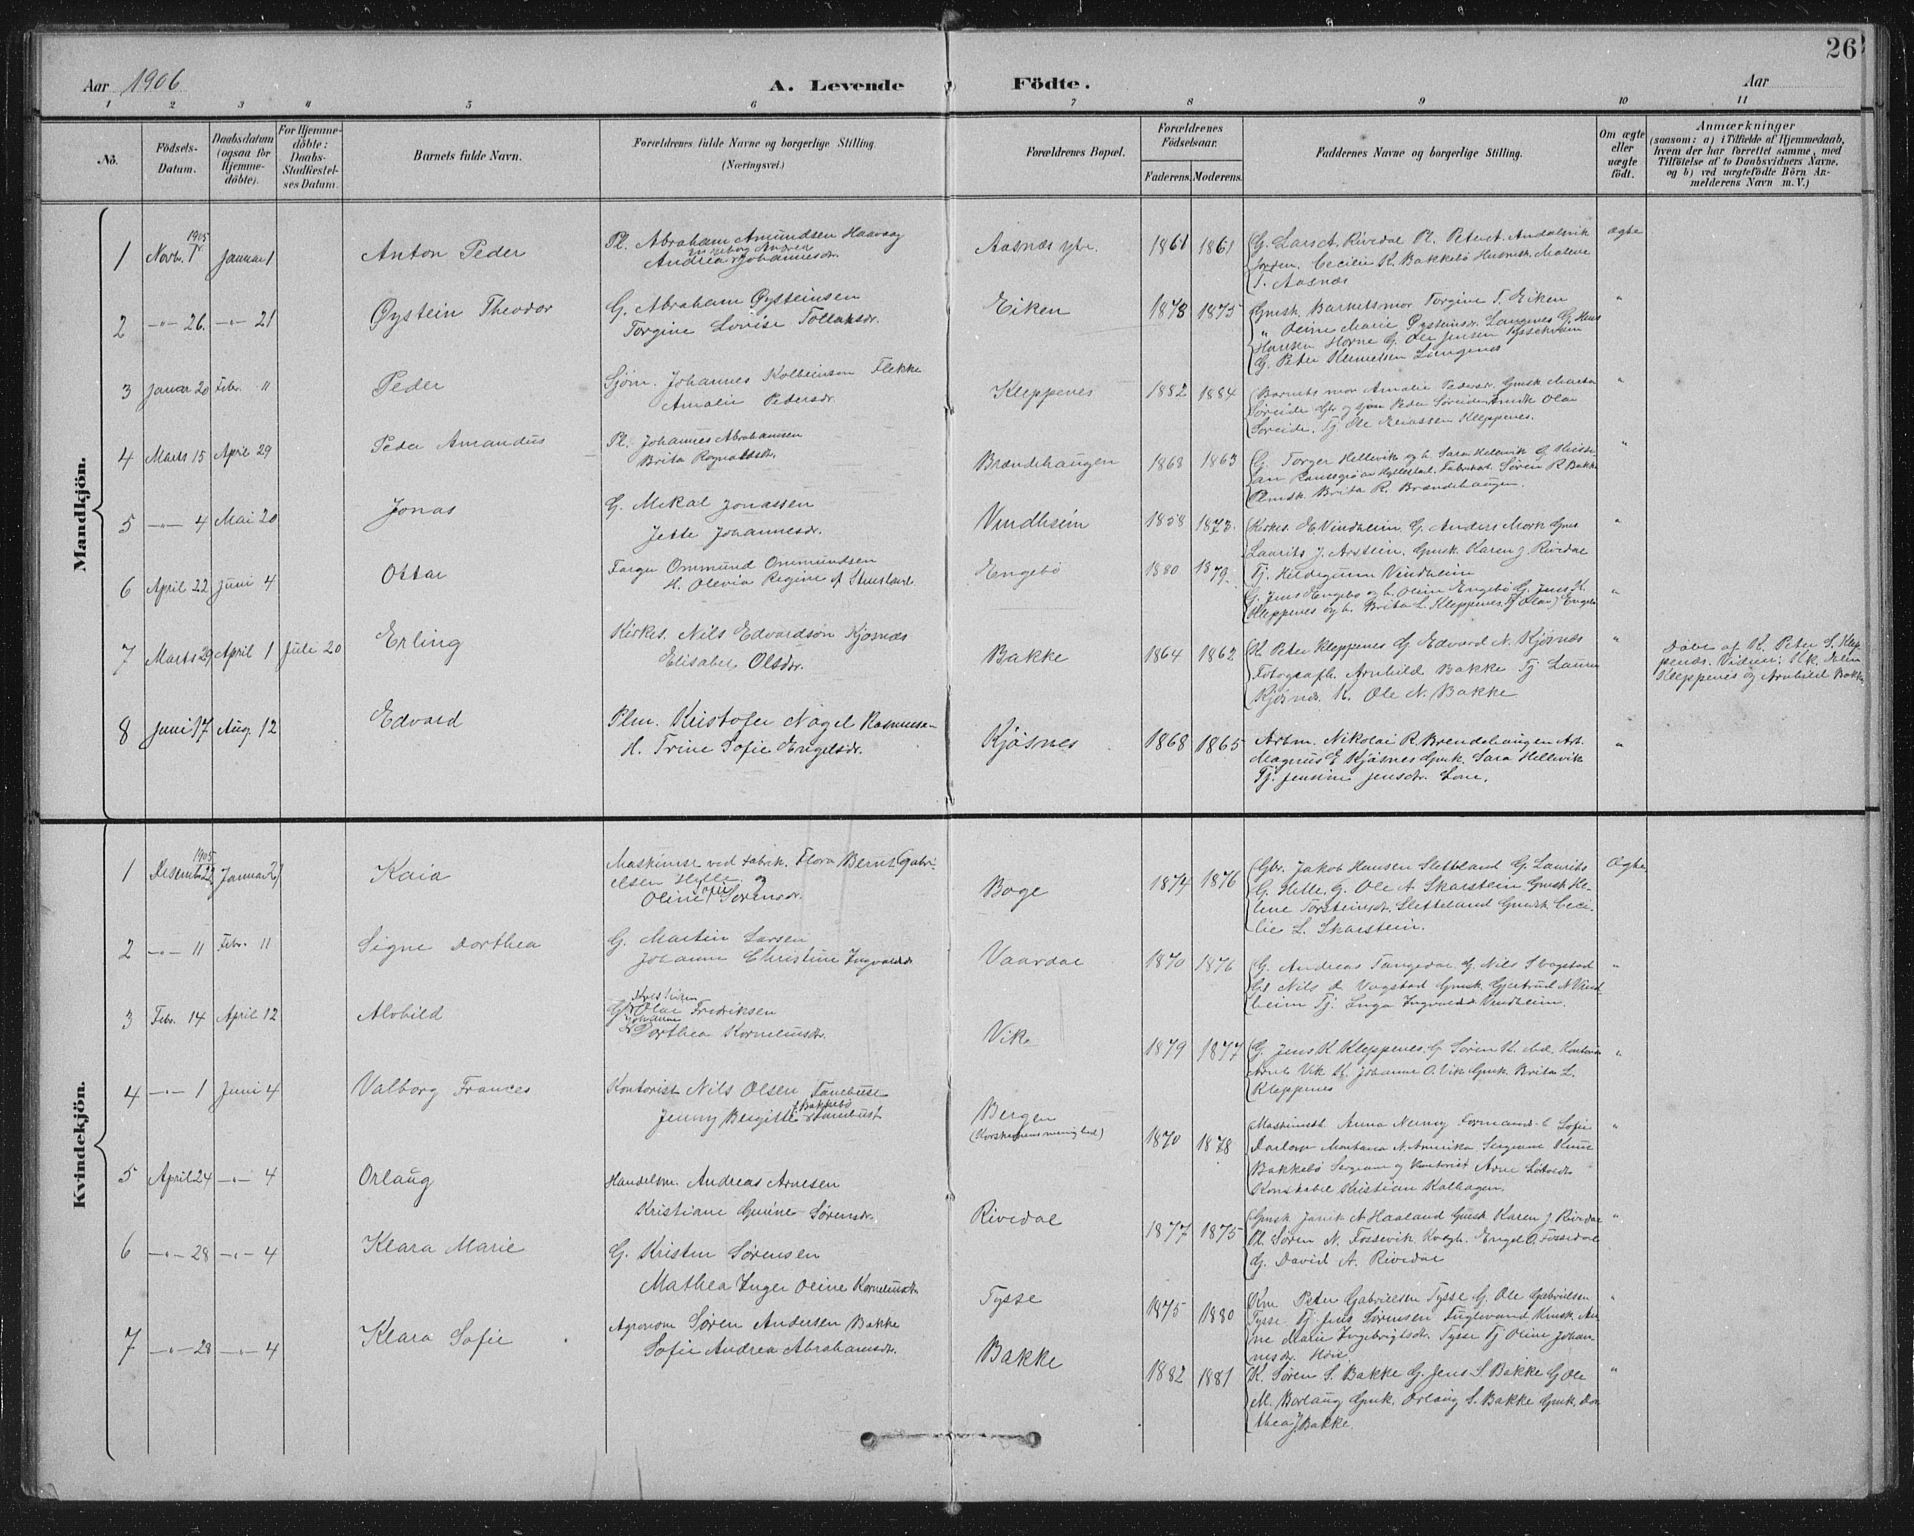 26
Aar 1906
A. Levende Födte.
Aar
1 2 3 4 5 6 7 8 9 10 11
No.
Födsels-Datum.
Daabsdatum (ogsaa for Hjemme-döbte).
For Hjemme-döbte: Daabs-Stadfæstel-ses Datum.
Barnets fulde Navn.
Forældrenes fulde Navne og borgerlige Stilling. (Næringsvei.)
Forældrenes Bopæl.
Forældrenes Födselsaar.
Faderens. Moderens.
Faddernes Navne og borgerlige Stilling.
Om ægte eller uægte födt.
Anmærkninger
(saasom: a) i Tilfælde af Hjemmedaab,
hvem der har forrettet samme, med
Tilföielse af to Daabsvidners Navne,
og b) ved uægtefödte Börn An-
melderens Navn m. V.)
Mandkjön.
1 Novb. 1905 Januar 1 Anton Peder
Pl. Abraham Amundsen Haavaag
Andrea Johannesdr.
Aasnæs ytre. 1861 1861
G. Lars A. Rivedal Pl. Peter Andalsvik
Cecilie K. Bakkebö Malene
T. Aasnæs
ægte
2 -"- 26. -"- 21 Øystein Theodor
G. Abraham Øysteinsen
Torgine Lovise Tollaksdr.
Eiken 1878 1875
Gmsk. Barnetsmor Torgine T. Eiken
" Oline Marie Øysteinsdr. Langenes G. Hans
Hansen Horne G. Ole Jensen
G. Peter Langenes
"
3 Januar 20 Febr. 11 Peder
Sjøm. Johannes Kolbeinsen Flekke
Amalie Pedersdr.
Kleppenes 1882 1884
Barnets mor Amalie Pedersdr. Gmsk Marta
Søreide Gbr og sjøm Peder Søreide Olav
Søreide. Tj. Ole Kleppenes.
"
4 Marts 15 April 29 Peder Amandus
Pl. Johannes Abrahamsen
Brita Rognaldsdr.
Brændehaugen 1868 1863
G. Torger Hellevik og h. Sara Hellevik G.
Hyllestad. Fabrikarb. Søren R Bakke
Plmsk Brita R. Brændehaugen.
"
5 -"- 4 Mai 20 Jonas
G. Mikal Jonassen
Jette Johannesdr.
Vindheim 1858 1873.
Kirkes. E Vindheim G. Anders Mork Gms
Laurits J. Arstein. Gmsk. Karen J. Rivedal
Tj. Hildegunn Vindheim
"
6 April 22 Juni 4 Ottar
Farger Ommund Ommundsen
H. Olevia Regine
Engebö 1880 1879.
G. Jens Engebø og h. Oline Engebö G. Jens K.
Kleppenes og h. Brita L. Kleppenes, Tj Olav Engebø
"
7 Marts 29 April 1 Juli 20 Erling
Kirkes. Nils Edvardson Kjösnæs
Elisabet Olsdr.
Bakke 1864 1862
K. Peter Kleppenes G Edvard N. Kjösnæs
Fotografh. Arnhild Bakke Tj Laura
Kjösnæs. K. Ole N. Bakke
"
Döbt af K. Peter S. Klep
penæs. Vidner: Hk. Oline
Kleppenes og Arnhild Bakke
8 Juni 17 Aug 12 Edvard
Plm. Kristofer Nagel Rasmussen
H. Trine Sofie Engelsdr.
Kjösnes 1868 1865
Arbm. Nikolai R. Brendehaugen Arb.
Magnus E Kjösnes Gmk. Sara Hellevik
Tj. Jensine Jensdr. Lone.
"
Kvindekjön.
1 Desember 22 1905 Januar 21 Kaia
Maskinist ved fabrik. Flora Bernt Gabri-
elsen Hylle og
Oline Sofie Sørensdr.
Boge 1874 1876
Gbr. Jakob Hansen Sletteland G. Laurits
G. Hille G. Ole A Skarstein Gmsk He-
line Torsteinsdr. Sletteland Gmsk. Ceci-
lie L. Skarstein.
Ægte
2 -"- 11 Febr. 11 Signe Dorthea
G. Martin Larsen
Johanne Christine Ingvaldsdr
Vaardal 1870 1876
G. Andreas Tangedal G. Nils S Vagstad
Gs Nils D Vagstad Gmsk. Gjertrud N Vind-
heim Tj. Inga Ingvaldsdr Vindheim.
"
3 Febr. 14 April 12 Alvhild
G. Olai Fredriksen
Johanne
Dorthea Korneliusdr.
Vik 1879 1877
G. Jens K Kleppenes, G Søren K. ibd. Kontorist
Arnt Vik H. Johanne O. Vik Gmk. Brita L.
Kleppenes
"
4 -"- 1 Juni 4 Valborg Frances
Kontorist Nils Olsen Tanebust
Jenny Bergitte f. Bakkebö Tanebust
Bergen
(Korskirkens menighed)
1870 1878
Maskinisth. Anna Nenny Formands h Sofie
Montana N. Amerika Sergeant Knut
Bakkebö Sergeant og kontorist Arne
Konstabel Kristian Kalhagen.
"
5 April 24 -"- 4 Orlaug
Handelsm. Andreas Arnesen
Kristiane Gurine Sørensdr.
Rivedal 1877 1875
Gmsk Janik N Haaland Gmsk. Karen J. Rivedal
Pl. Søren N. Fossevik Engel O. Fossedal
G. David A. Rivedal
"
6 -"- 28 -"- 4 Klara Marie
G. Kristen Sørensen
Mathea Inger Oline Korneliusdr.
Tysse 1875 1880
Peter Gabrielsen Tysse G. Ole Gabrielsen
Tysse Tj. Jens Sørensen Fuglevand An-
ne Marie Ingebrigtsdr. Tysse Tj Oline Johan-
nesdr.
"
7 -"- 28 -"- 4 Klara Sofie
Agronom Søren Andersen Bakke
Sofie Andrea Abrahamsdr.
Bakke 1882 1881
K. Søren S. Bakke G. Jens S. Bakke G Ole
M. Borlaug Gmk. Orlaug S. Bakke Gmk. Dor
thea J Bakke.
"